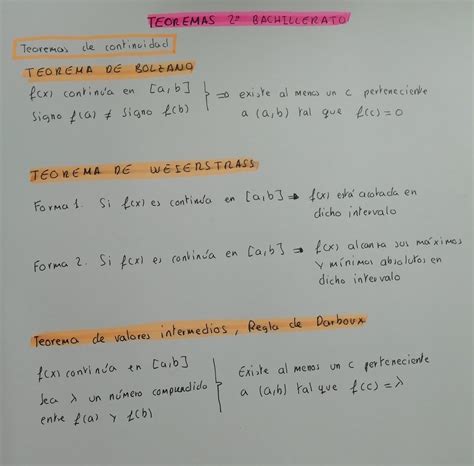 TEOREMAS 2º BACHILLERATO
Teoremas de continuidad
TEOREMA DE BOLZANO
f(x) continúa en [a,b] } ⇒ existe al menos un c perteneciente
Signo f(a) ≠ Signo f(b) a (a,b) tal que f(c)=0
TEOREMA DE WEIERSTRASS
Forma 1. Si f(x) es continúa en [a,b] ⇒ f(x) está acotada en
dicho intervalo
Forma 2. Si f(x) es continúa en [a,b] ⇒ f(x) alcanza sus máximos
y mínimos absolutos en
dicho intervalo
Teorema de valores intermedios, Regla de Darboux
f(x) continúa en [a,b] } Existe al menos un c perteneciente
Sea λ un número comprendido a (a,b) tal que f(c)=λ
entre f(a) y f(b)